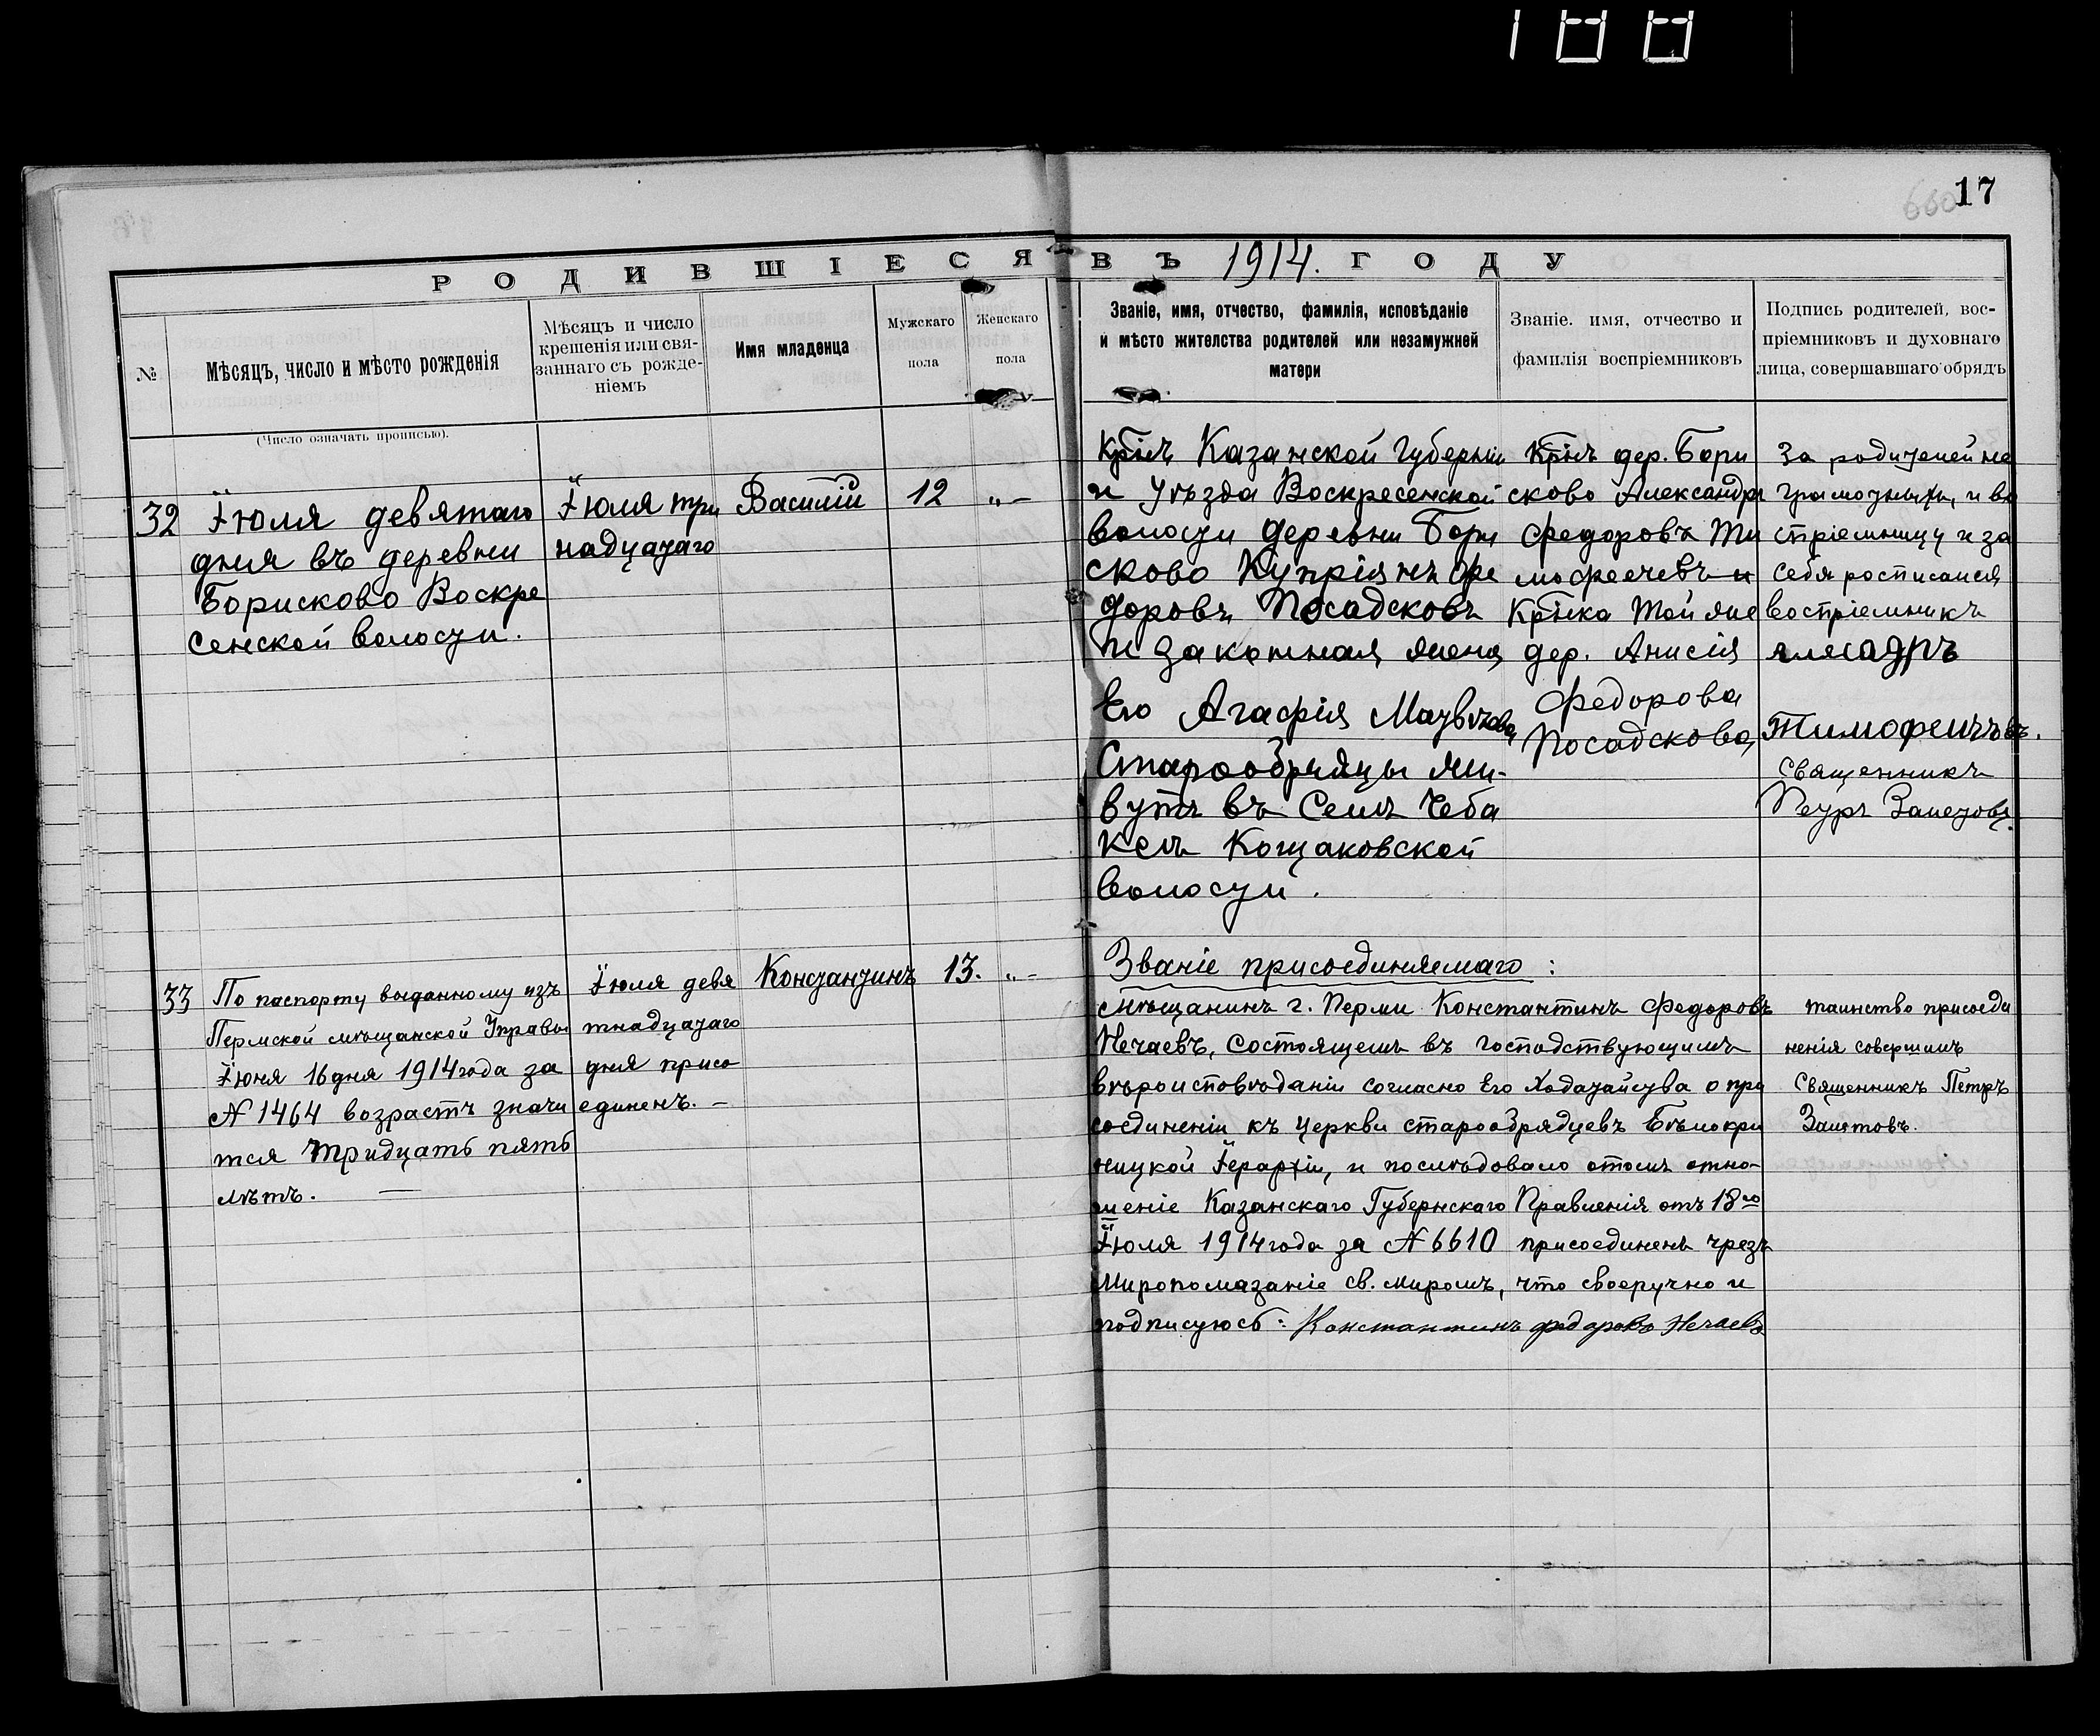 188
17
660
РОДИВШІЕСЯ ВЪ 1914. ГОДУ
№
Мѣсяцъ, число и мѣсто рожденія
(Число означать прописью).
Мѣсяцъ и число
крещенія или свя-
заннаго съ рожде-
ніемъ
Имя младенца
Мужскаго
пола
Женскаго
пола
Званіе, имя, отчество, фамилія, исповѣданіе
и мѣсто жителства родителей или незамужней
матери
Званіе. имя, отчество и
фамилія воспріемниковъ
Подпись родителей, вос-
пріемниковъ и духовнаго
лица, совершавшаго обрядъ
32
Іюля девятаго
дня въ деревни
Борисково Воскре
сенской волости.
Іюля три
надцатаго
Василій
12
„ –
Крінъ Казанской Губерніи
и Уѣзда Воскресенской
волости деревни Бори
сково Купріянъ Фе
доровъ Посадсковъ
и законная жена
Его Агафія Матвѣева
Старообрядцы жи-
вутъ въ Селѣ Чеба
ксѣ Кощаковской
волости.
Крінъ дер. Бори
сково Александръ
Федоровъ Ти
мофеечевъ и
Крінка той же
дер. Анисія
Федорова
Посадскова
За родителей не
грамотныхъ, и во
стріемницу и за
себя росписался
востріемникъ
алексадръ
Тимофеичъвъ.
Священникъ
Петръ Залетовъ.
33
По паспорту выданному изъ
Пермской мѣщанской Управы
Іюня 16 дня 1914 года за
№ 1464 возрастъ значи
тся тридцать пять
лѣтъ. —
Іюля девя
тнадцатаго
дня присо
единенъ. –
Константинъ
13.
„ –
Званіе присоединяемаго:
мѣщанинъ г. Перми Константинъ Федоровъ
Нечаевъ, состоящемъ въ господствующимъ
вѣроисповѣданіи согласно Его Ходатайства о при
соединеніи къ церкви старообрядцевъ Бѣлокри
ницкой Іерархіи, и послѣдовало отомъ отно-
шеніе Казанскаго Губернскаго Правленія отъ 18го
Іюля 1914 года за № 6610 присоединенъ чрезъ
Миропомазаніе св. миромъ, что своеручно и
подписуюсь: Константинъ федоровъ Нечаевъ
таинство присоеди
ненія совершилъ
Священникъ Петръ
Залѣтовъ.